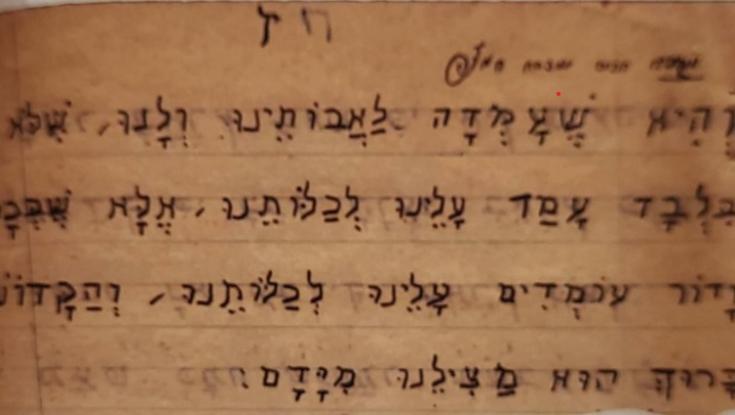 ח ץ
וְהִיא שֶׁעָמְדָה לַאֲבוֹתֵינוּ וְלָנוּ, שֶׁלֹּא
בִּלְבָד עָמַד עָלֵינוּ לְכַלּוֹתֵנוּ, אֶלָּא
עוֹמְדִים עָלֵינוּ לְכַלּוֹתֵנוּ, וְהַקָּדוֹשׁ
בָּרוּךְ הוּא מַצִּילֵנוּ מִיָּדָם: